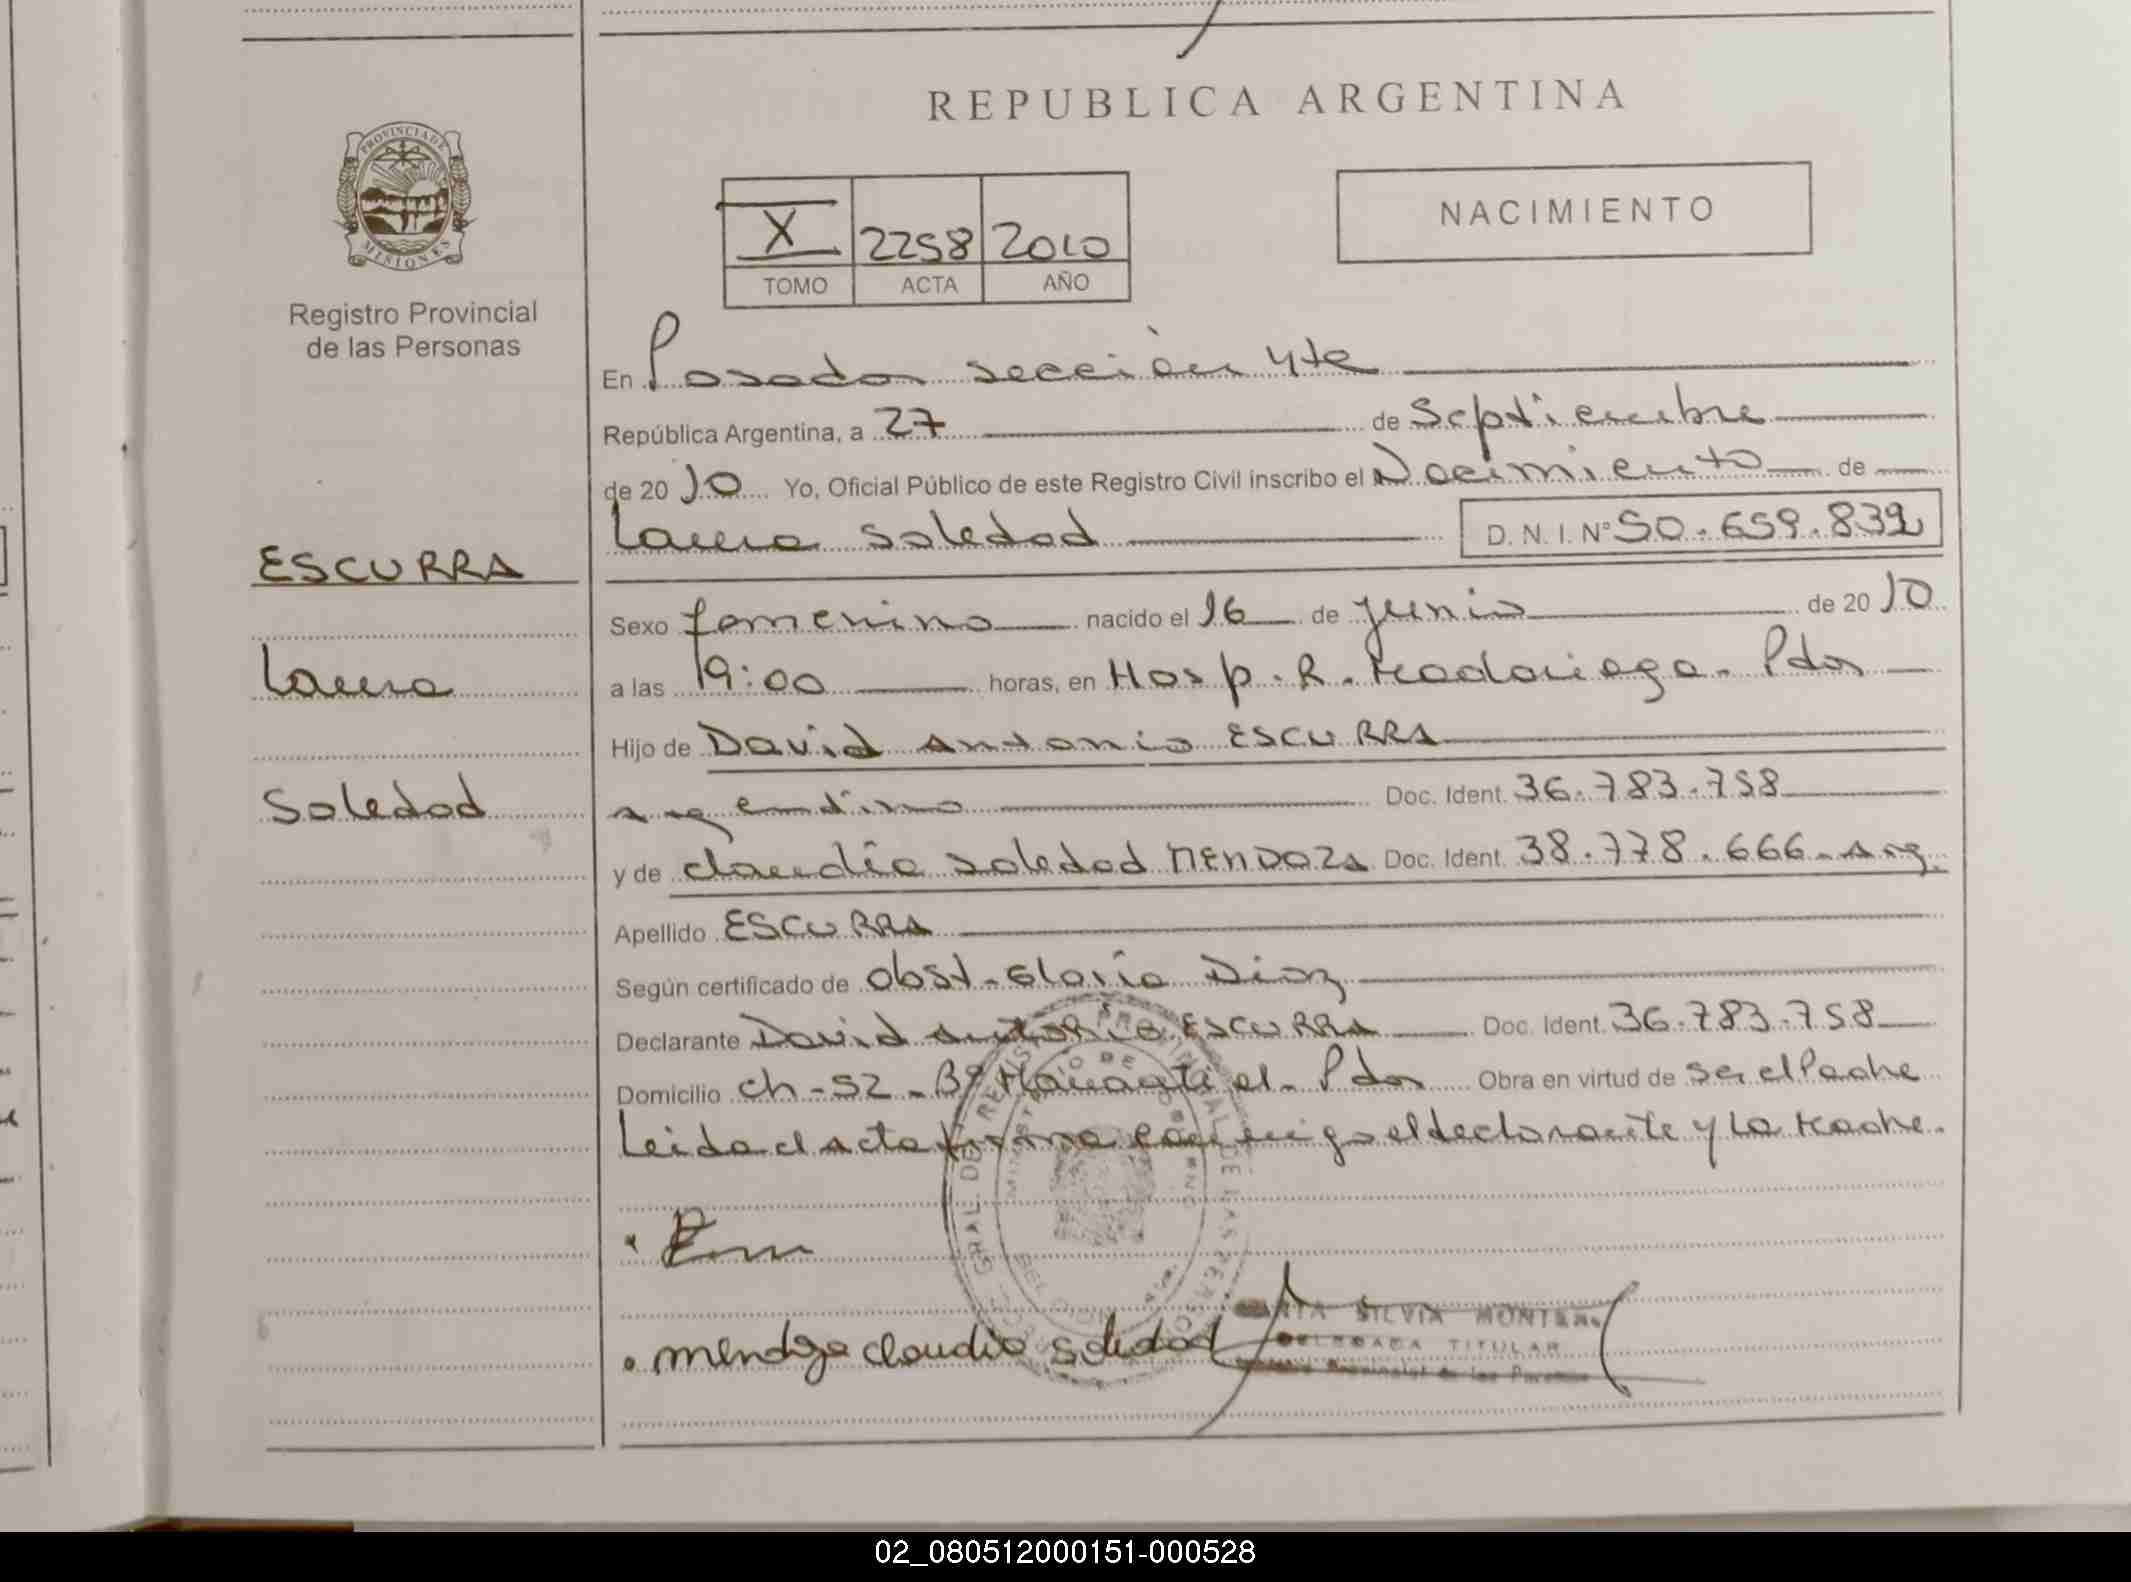 REPUBLICA ARGENTINA
PROVINCIA DE MISIONES
Registro Provincial
de las Personas
X 2258 2010
TOMO ACTA AÑO
NACIMIENTO
En Posadas sección 4ta
República Argentina, a 27 de Septiembre
de 2010 Yo, Oficial Público de este Registro Civil inscribo el Nacimiento de
Laura Soledad D.N.I. Nº 50.659.832
ESCURRA
Laura
Soledad
Sexo femenino nacido el 16 de junio de 2010
a las 19:00 horas, en Hosp. R. Madariaga. Pdas
Hijo de David Antonio ESCURRA
argentino Doc. Ident. 36.783.758
y de Claudia Soledad MENDOZA Doc. Ident. 38.778.666 - Arg.
Apellido ESCURRA
Según certificado de Obst. Gloria Diaz
Declarante David Antonio ESCURRA Doc. Ident. 36.783.758
Domicilio Ch - 52 - Bº - Pdas Obra en virtud de ser el Padre
Leida el acta firma conmigo el declarante y la Madre.
mendoza claudia soledad
SILVIA
DELEGADA TITULAR
Provincial de las Personas
02_080512000151-000528